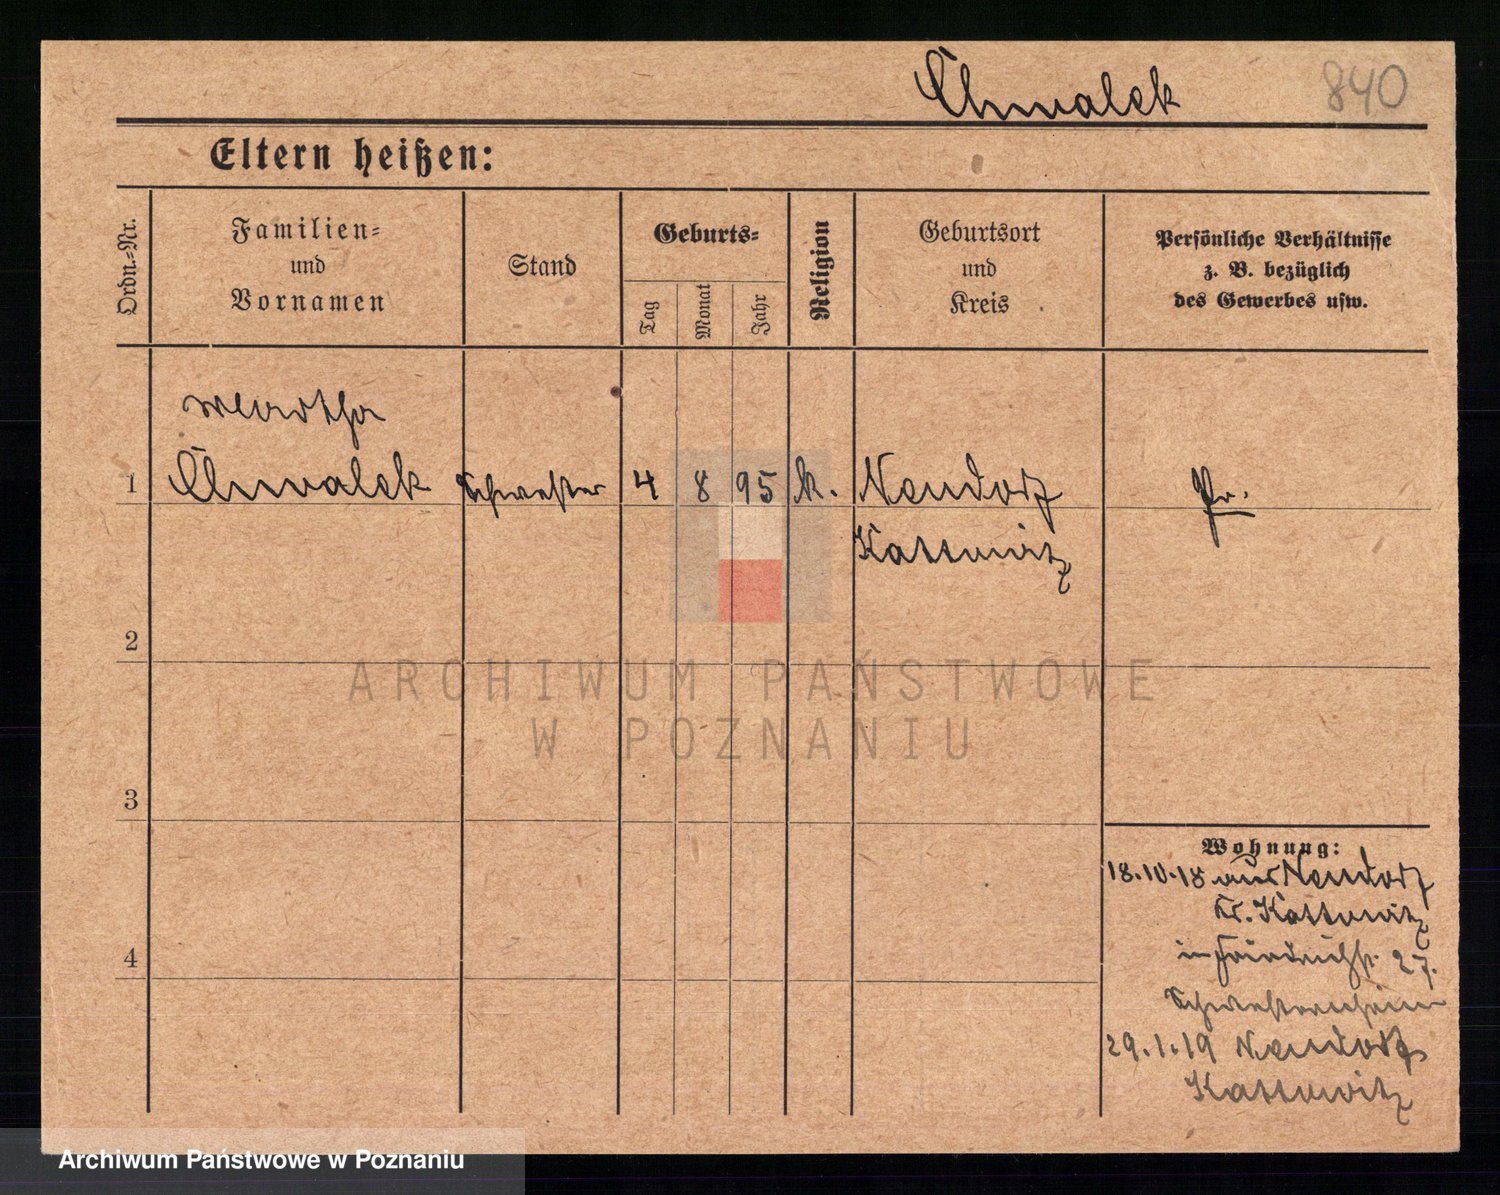 Chwalek 840
Eltern heißen:
Ordn.-Nr.
Familien-
und
Vornamen
Stand
Geburts-
Tag
Monat
Jahr
Religion
Geburtsort
und
Kreis
Persönliche Verhältnisse
z. B. bezüglich
des Gewerbes usw.
Martha
1 Chwalek Schwester 4 8 95 k. Neudorf Pr.
Kattowitz
2
3
4
Wohnung:
18.10.18 aus Neudorf
Kr. Kattowitz
in Friedrichstr. 27.
Schwesternheim
29.1.19 Neudorf
Kattowitz
ARCHIWUM PAŃSTWOWE
W POZNANIU
Archiwum Państwowe w Poznaniu